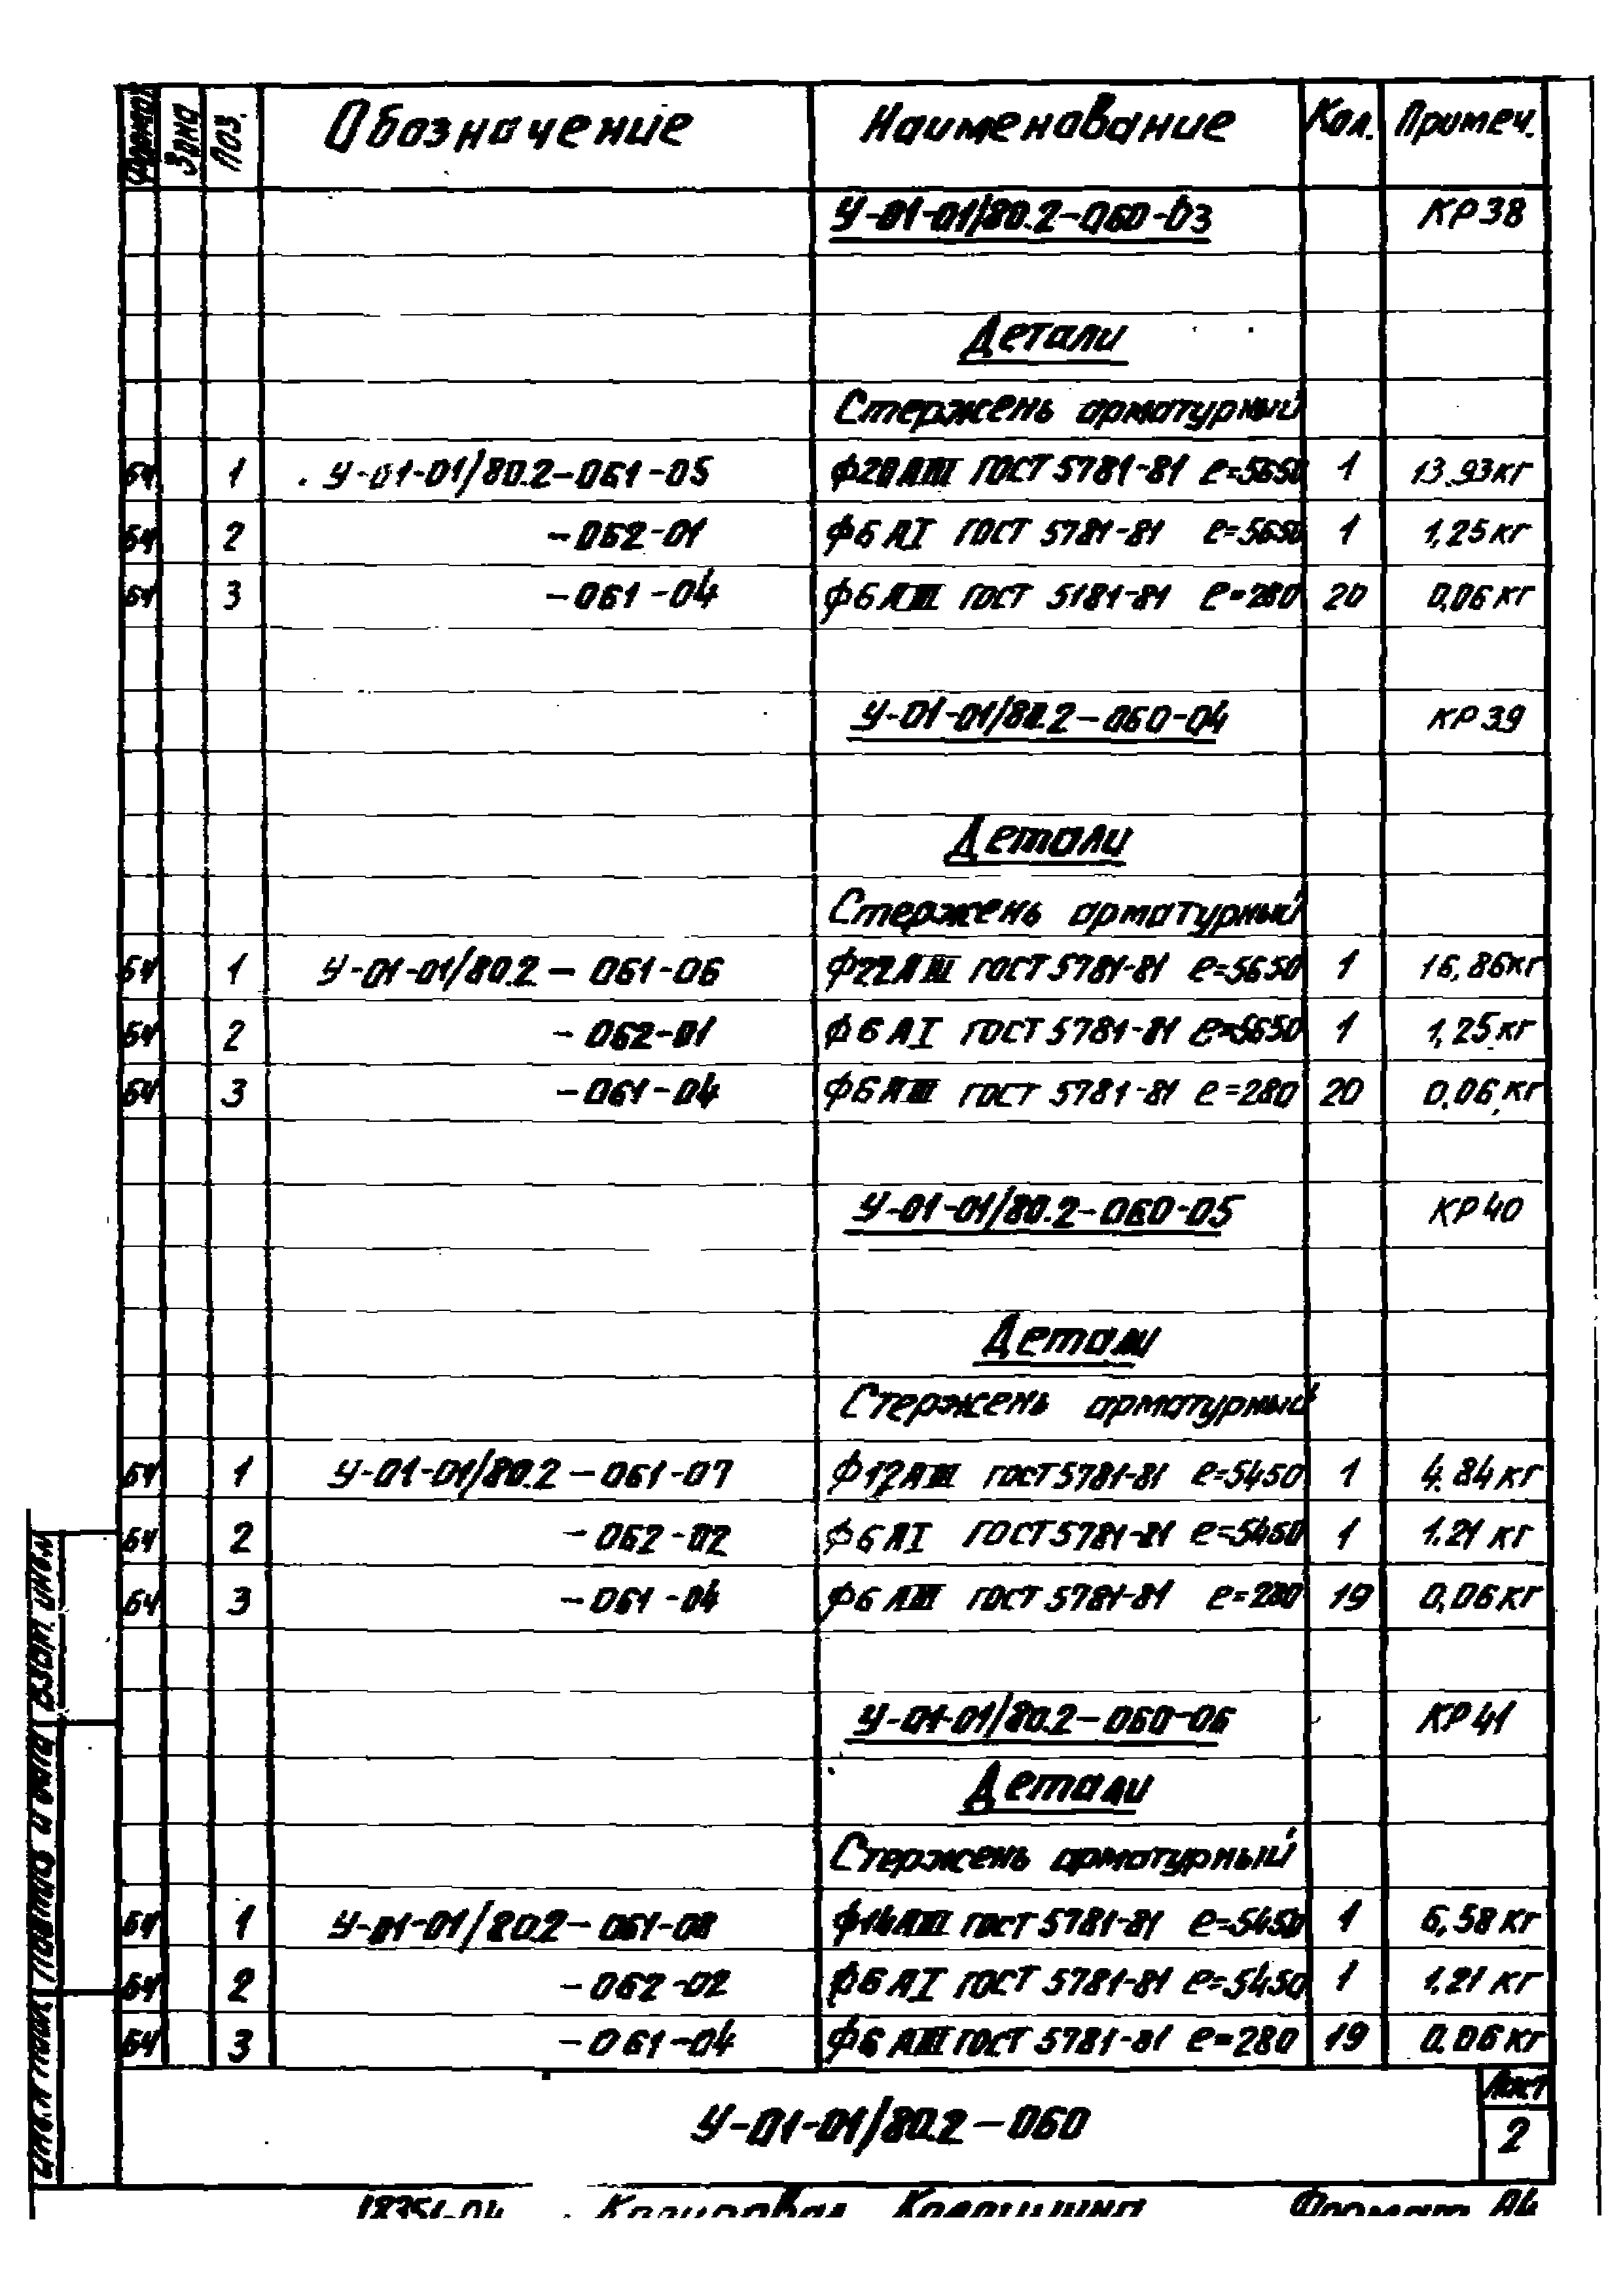 Формат Зона Поз. Обозначение Наименование Кол. Примеч.
У-01-01/80.2-060-03 КР38
Детали
Стержень арматурный
БЧ 1 У-01-01/80.2-061-05 Ф20АIII ГОСТ 5781-81 ℓ=5650 1 13.93кг
БЧ 2 -062-01 Ф6АI ГОСТ 5781-81 ℓ=5650 1 1,25кг
БЧ 3 -061-04 Ф6АIII ГОСТ 5181-81 ℓ=280 20 0,06кг
У-01-01/80.2-060-04 КР39
Детали
Стержень арматурный
БЧ 1 У-01-01/80.2-061-06 Ф22АIII ГОСТ 5781-81 ℓ=5650 1 16,86кг
БЧ 2 -062-01 Ф6АI ГОСТ 5781-81 ℓ=5650 1 1,25кг
БЧ 3 -061-04 Ф6АIII ГОСТ 5781-81 ℓ=280 20 0.06кг
У-01-01/80.2-060-05 КР40
Детали
Стержень арматурный
БЧ 1 У-01-01/80.2-061-07 Ф12АIII ГОСТ 5781-81 ℓ=5450 1 4.84кг
БЧ 2 -062-02 Ф6АI ГОСТ 5781-81 ℓ=5450 1 1.21кг
БЧ 3 -061-04 Ф6АIII ГОСТ 5781-81 ℓ=280 19 0,06кг
У-01-01/80.2-060-06 КР41
Детали
Стержень арматурный
БЧ 1 У-01-01/80.2-061-08 Ф14АIII ГОСТ 5781-81 ℓ=5450 1 6,58кг
БЧ 2 -062-02 Ф6АI ГОСТ 5781-81 ℓ=5450 1 1,21кг
БЧ 3 -061-04 Ф6АIII ГОСТ 5781-81 ℓ=280 19 0.06кг
Инв.№ подл. Подпись и дата Взам. инв.№
У-01-01/80.2-060
Лист
2
Копировал Формат А4